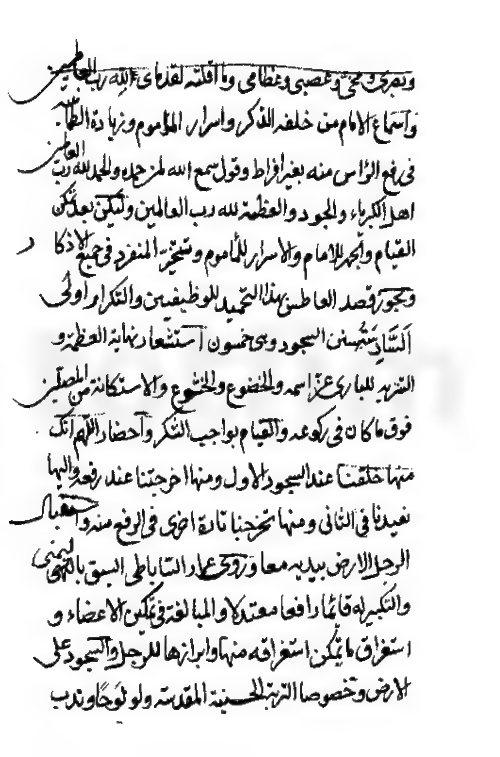 وبصري ومخي وعصبي وعظامي وما اقلته قدماي لله رب العالمين
واسماع الامام من خلفه الذكر واسرار الماموم وزيادة الطمأنينة
في رفع الرأس منه بغير افراط وقول سمع الله لمن حمده والحمد لله رب العالمين
اهل الكبرياء والجود والعظمة لله رب العالمين وليكن بعد تمكن
القيام والجهر للامام والاسرار للماموم وتخير المنفرد في جميع الاذكار
ويجوز قصد العاطس بهذا التحميد للوظيفتين والتكرار اولى
السادس سنن السجود وهي خمسون استشعار نهاية العظمة و
التنزيه للباري عز اسمه والخضوع والخشوع والاستكانة من المصلي
فوق ما كان في ركوعه والقيام بواجب الشكر واحضار اللهم انك
منها خلقتنا عند السجود الاول ومنها اخرجتنا عند رفعه واليها
تعيدنا في الثاني ومنها تخرجنا تارة اخرى في الرفع منه واستقبال
الرجل الارض بيديه معا وروى عمار الساباطي السبق باليمنى
والتكبير له قائما رافعا معتدلا والمبالغة في تمكين الاعضاء و
استغراق ما يمكن استغراقه منها وابرازها للرجل والسجود على
الارض وخصوصا التربة الحسينية المقدسة ولو لوحا وندب